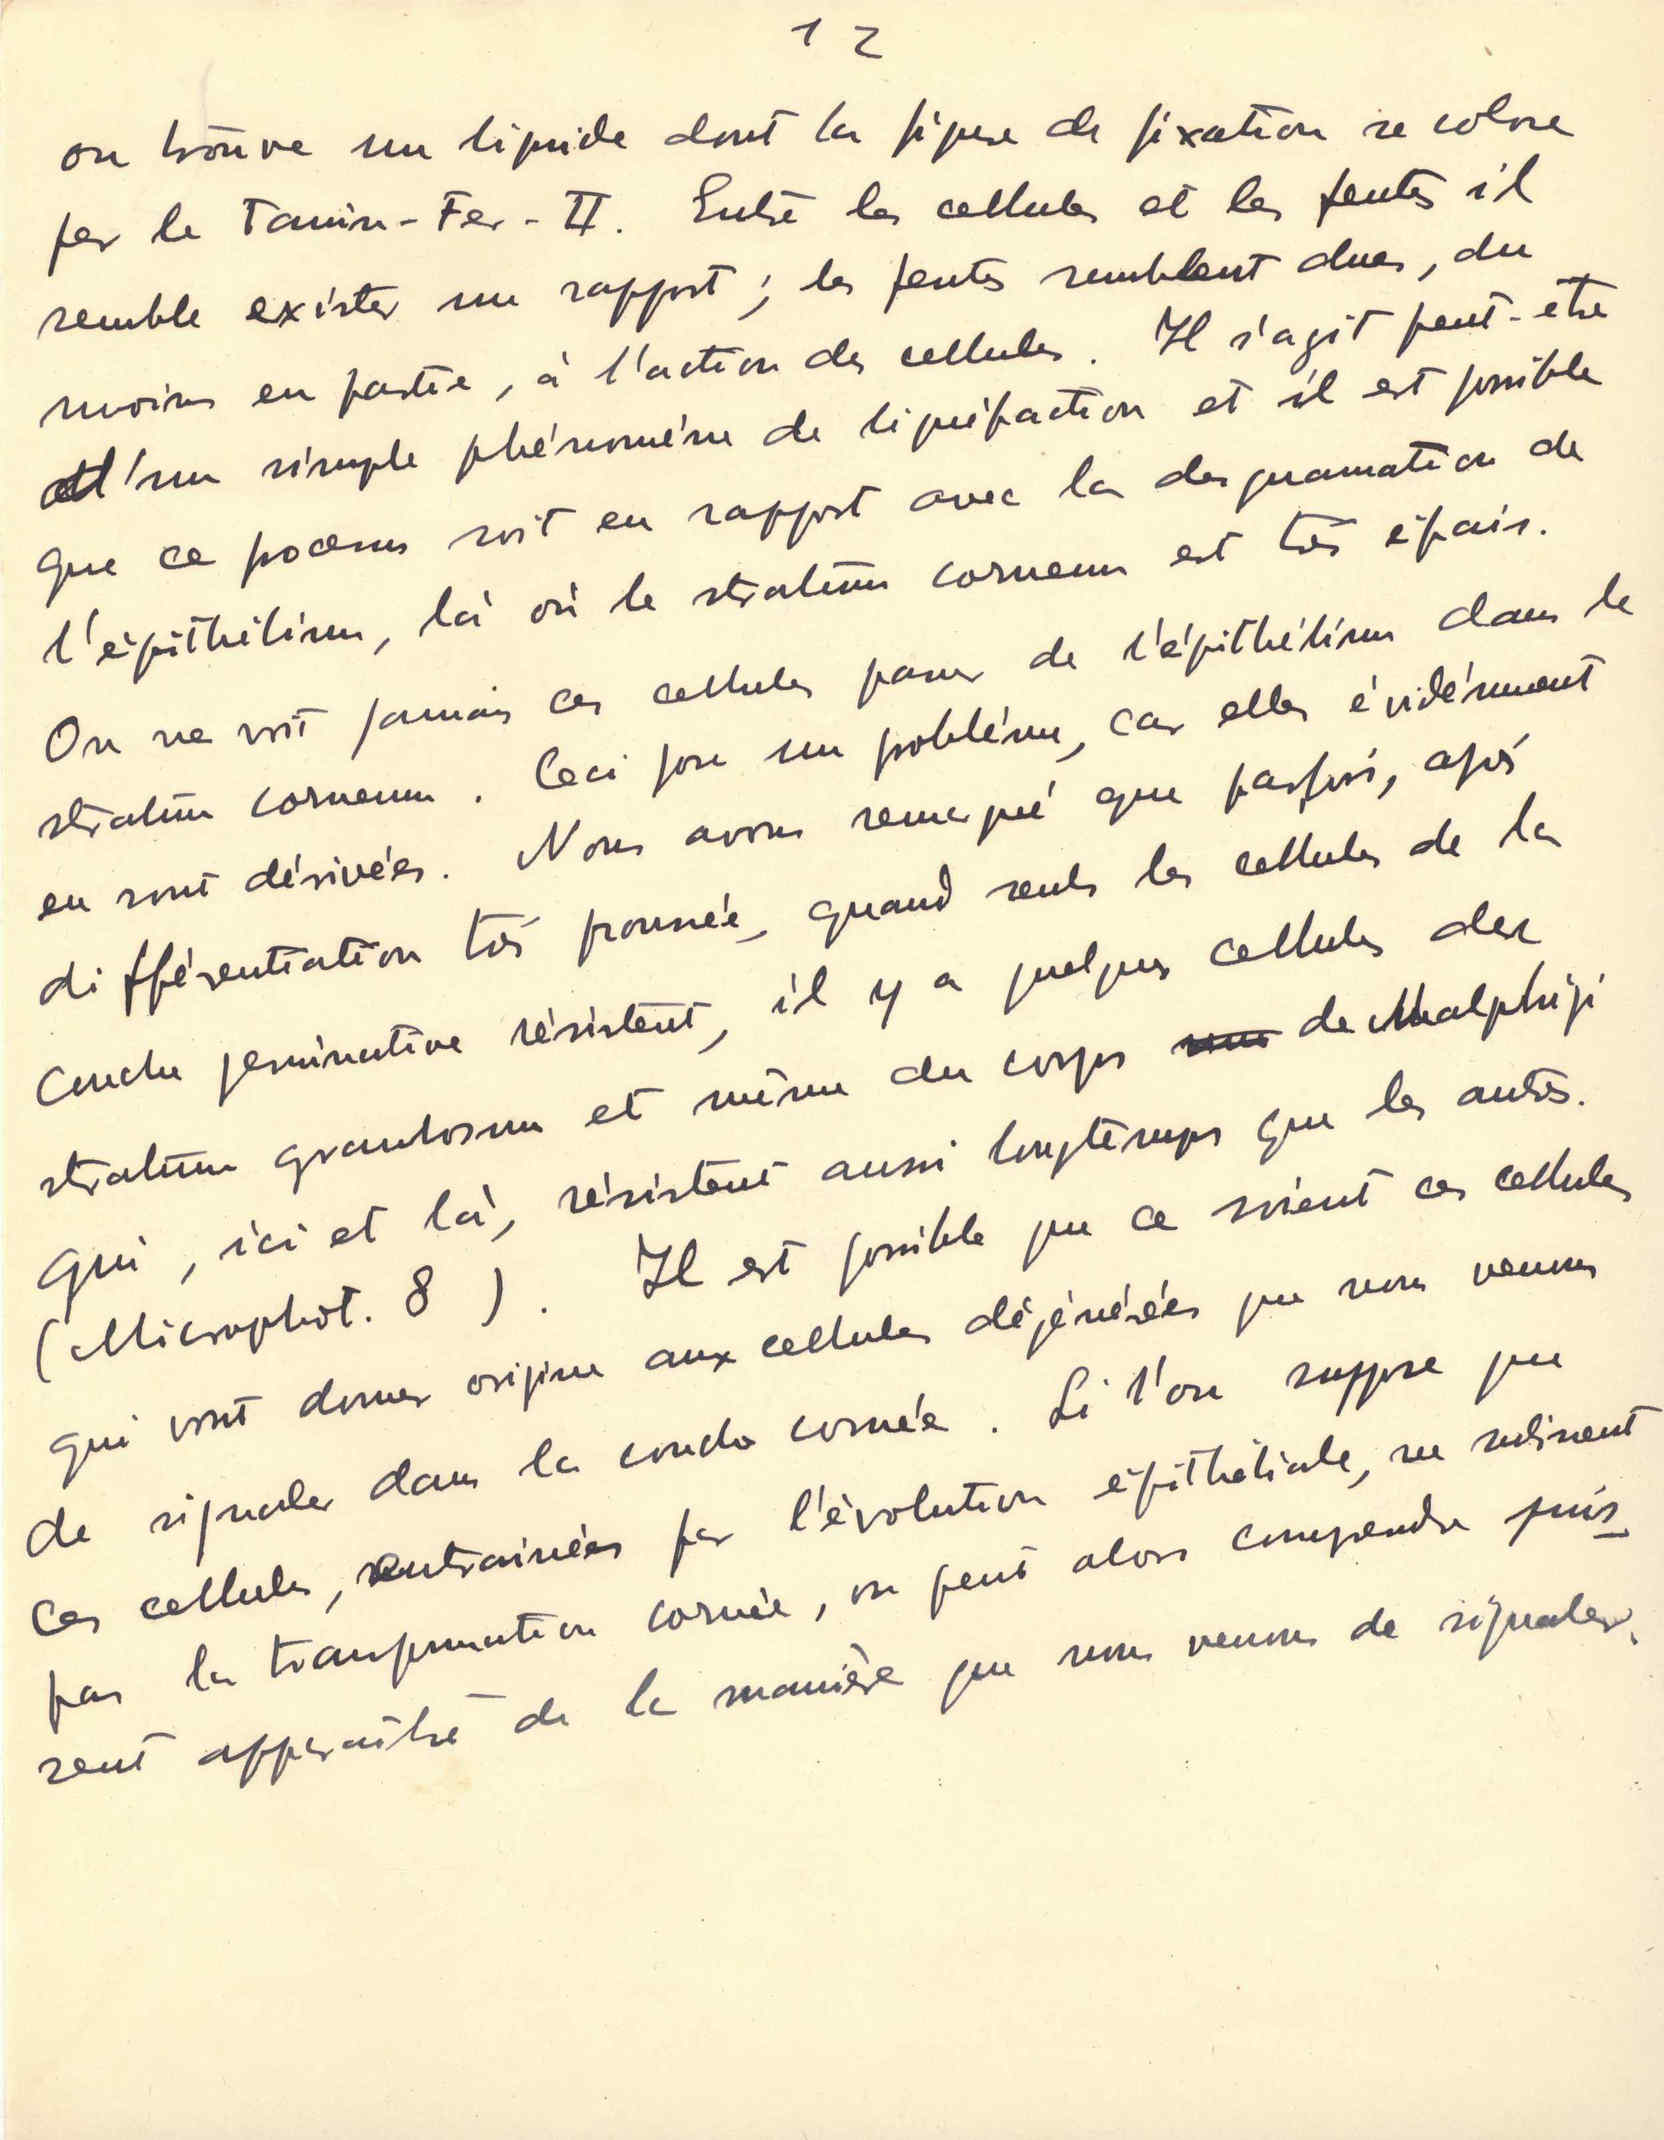 12
on trouve un liquide dont la figure de fixation se colore
par le Tanin-Fer-II. Entre les cellules et les fentes il
semble exister un rapport; les fentes semblent dues, du
moins en partie, à l'action des cellules. Il s'agit peut-etre
d'un simple phénoméne de liquéfaction et il est possible
que ce processus soit en rapport avec la desquamation de
l'épithélium, là où le stratum corneum est très épais.
On ne voit jamais ces cellules passer de l'épithélium dans le
stratum corneum. Ceci pose un probléme, car elles évidémment
en sont dérivées. Nous avons remarqué que parfois, après
différentiation très poussée, quand seules les cellules de la
couche germinative résistent, il y a quelques cellules des
stratum granulosum et même du corps de Malphigi
qui, ici et là, résistent aussi longtemps que les autres.
(Microphot. 8). Il est possible que ce soient ces cellules
qui vont donner origine aux cellules dégénérées que nous venons
de signaler dans la couche cornée. Si l'on suppose que
ces cellules, entrainées par l'évolution épithéliale, ne subissent
pas la transformation cornée, on peut alors comprendre puis
sent apparaître de la manière que nous venons de signaler.